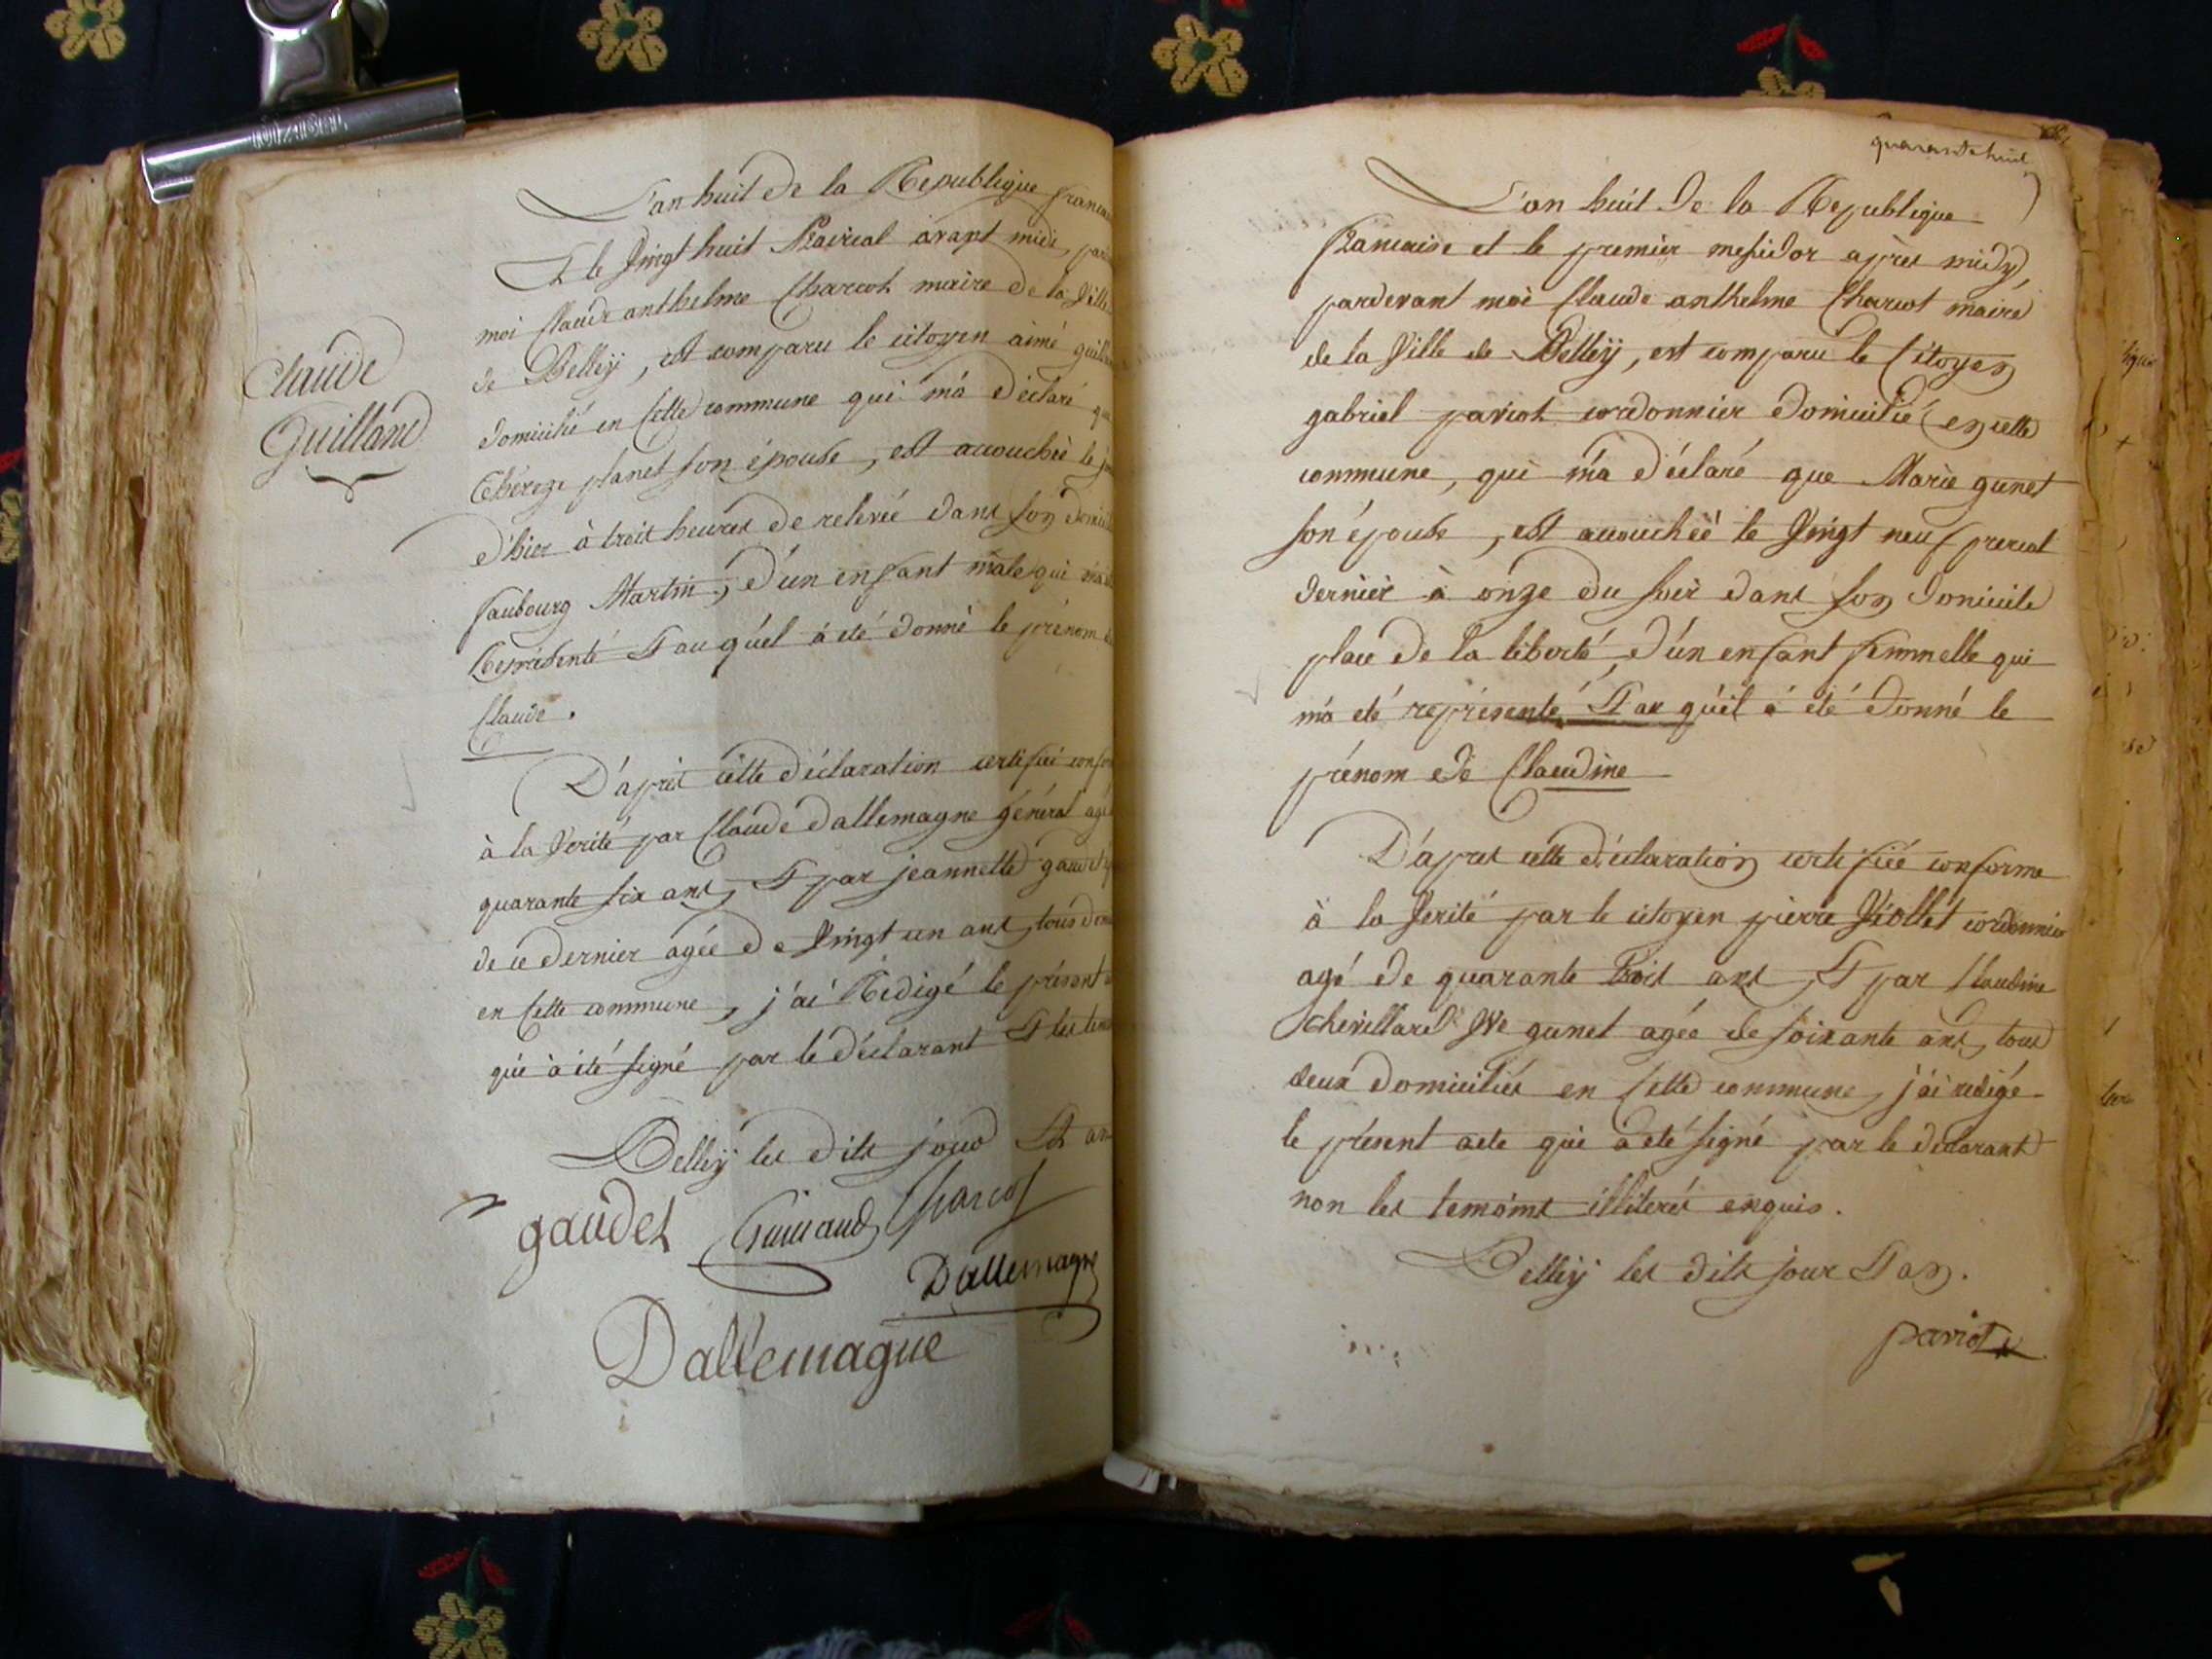 Claude
Guilland
L'an huit de la Republique
Et le Vingt huit Prairial avant midi
moi Claude anthelme Charcot maire de la Ville
de Belleÿ, est comparu le citoyen aimé
domicilié en Cette commune qui m'a déclaré
Thereze planet son épouse, est accouchée le
d'hier à trois heures de relevée dans son
faubourg Martin, d'un enfant mâle qui
Représenté Et au quél à été donné le prénom
Claude.
D'aprés cette déclaration certifiée
à la Verité par Claude dallemagne général
quarante six ans, Et par jeannette
de ce dernier agée de Vingt un ans, tous
en Cette commune, j'ai Redigé le présent
qui à été signé par le déclarant Et les
Belleÿ les dits jour Et an
gaudet Guilland Charcot
Dallemagne
Dallemagne
quarante huit
L'an huit de la Republique
française et le premier messidor aprés midy
pardevant moi Claude anthelme Charcot maire
de la Ville de Belleÿ, est comparu le Citoyen
gabriel pariot cordonnier domicilié en cette
commune, qui m'a déclaré que Marie gunet
son épouse, est accouchée le Vingt neuf prerial
dernier à onze du soir dans son domicile
place de la liberté, d'un enfant femmelle qui
m'a eté représenté Et au quél à été donné le
prénom de Claudine
D'aprés cette déclaration certifiée conforme
à la Verité par le citoyen pierre Viollet cordonnier
agé de quarante trois ans, Et par Claudine
chevillard Ve gunet agée de soixante ans, tous
deux domiciliés en Cette commune, j'ai redigé
le présent acte qui a eté signé par le declarant
non les temoins illiterés enquis.
Belleÿ les dits jour Et an.
pariot